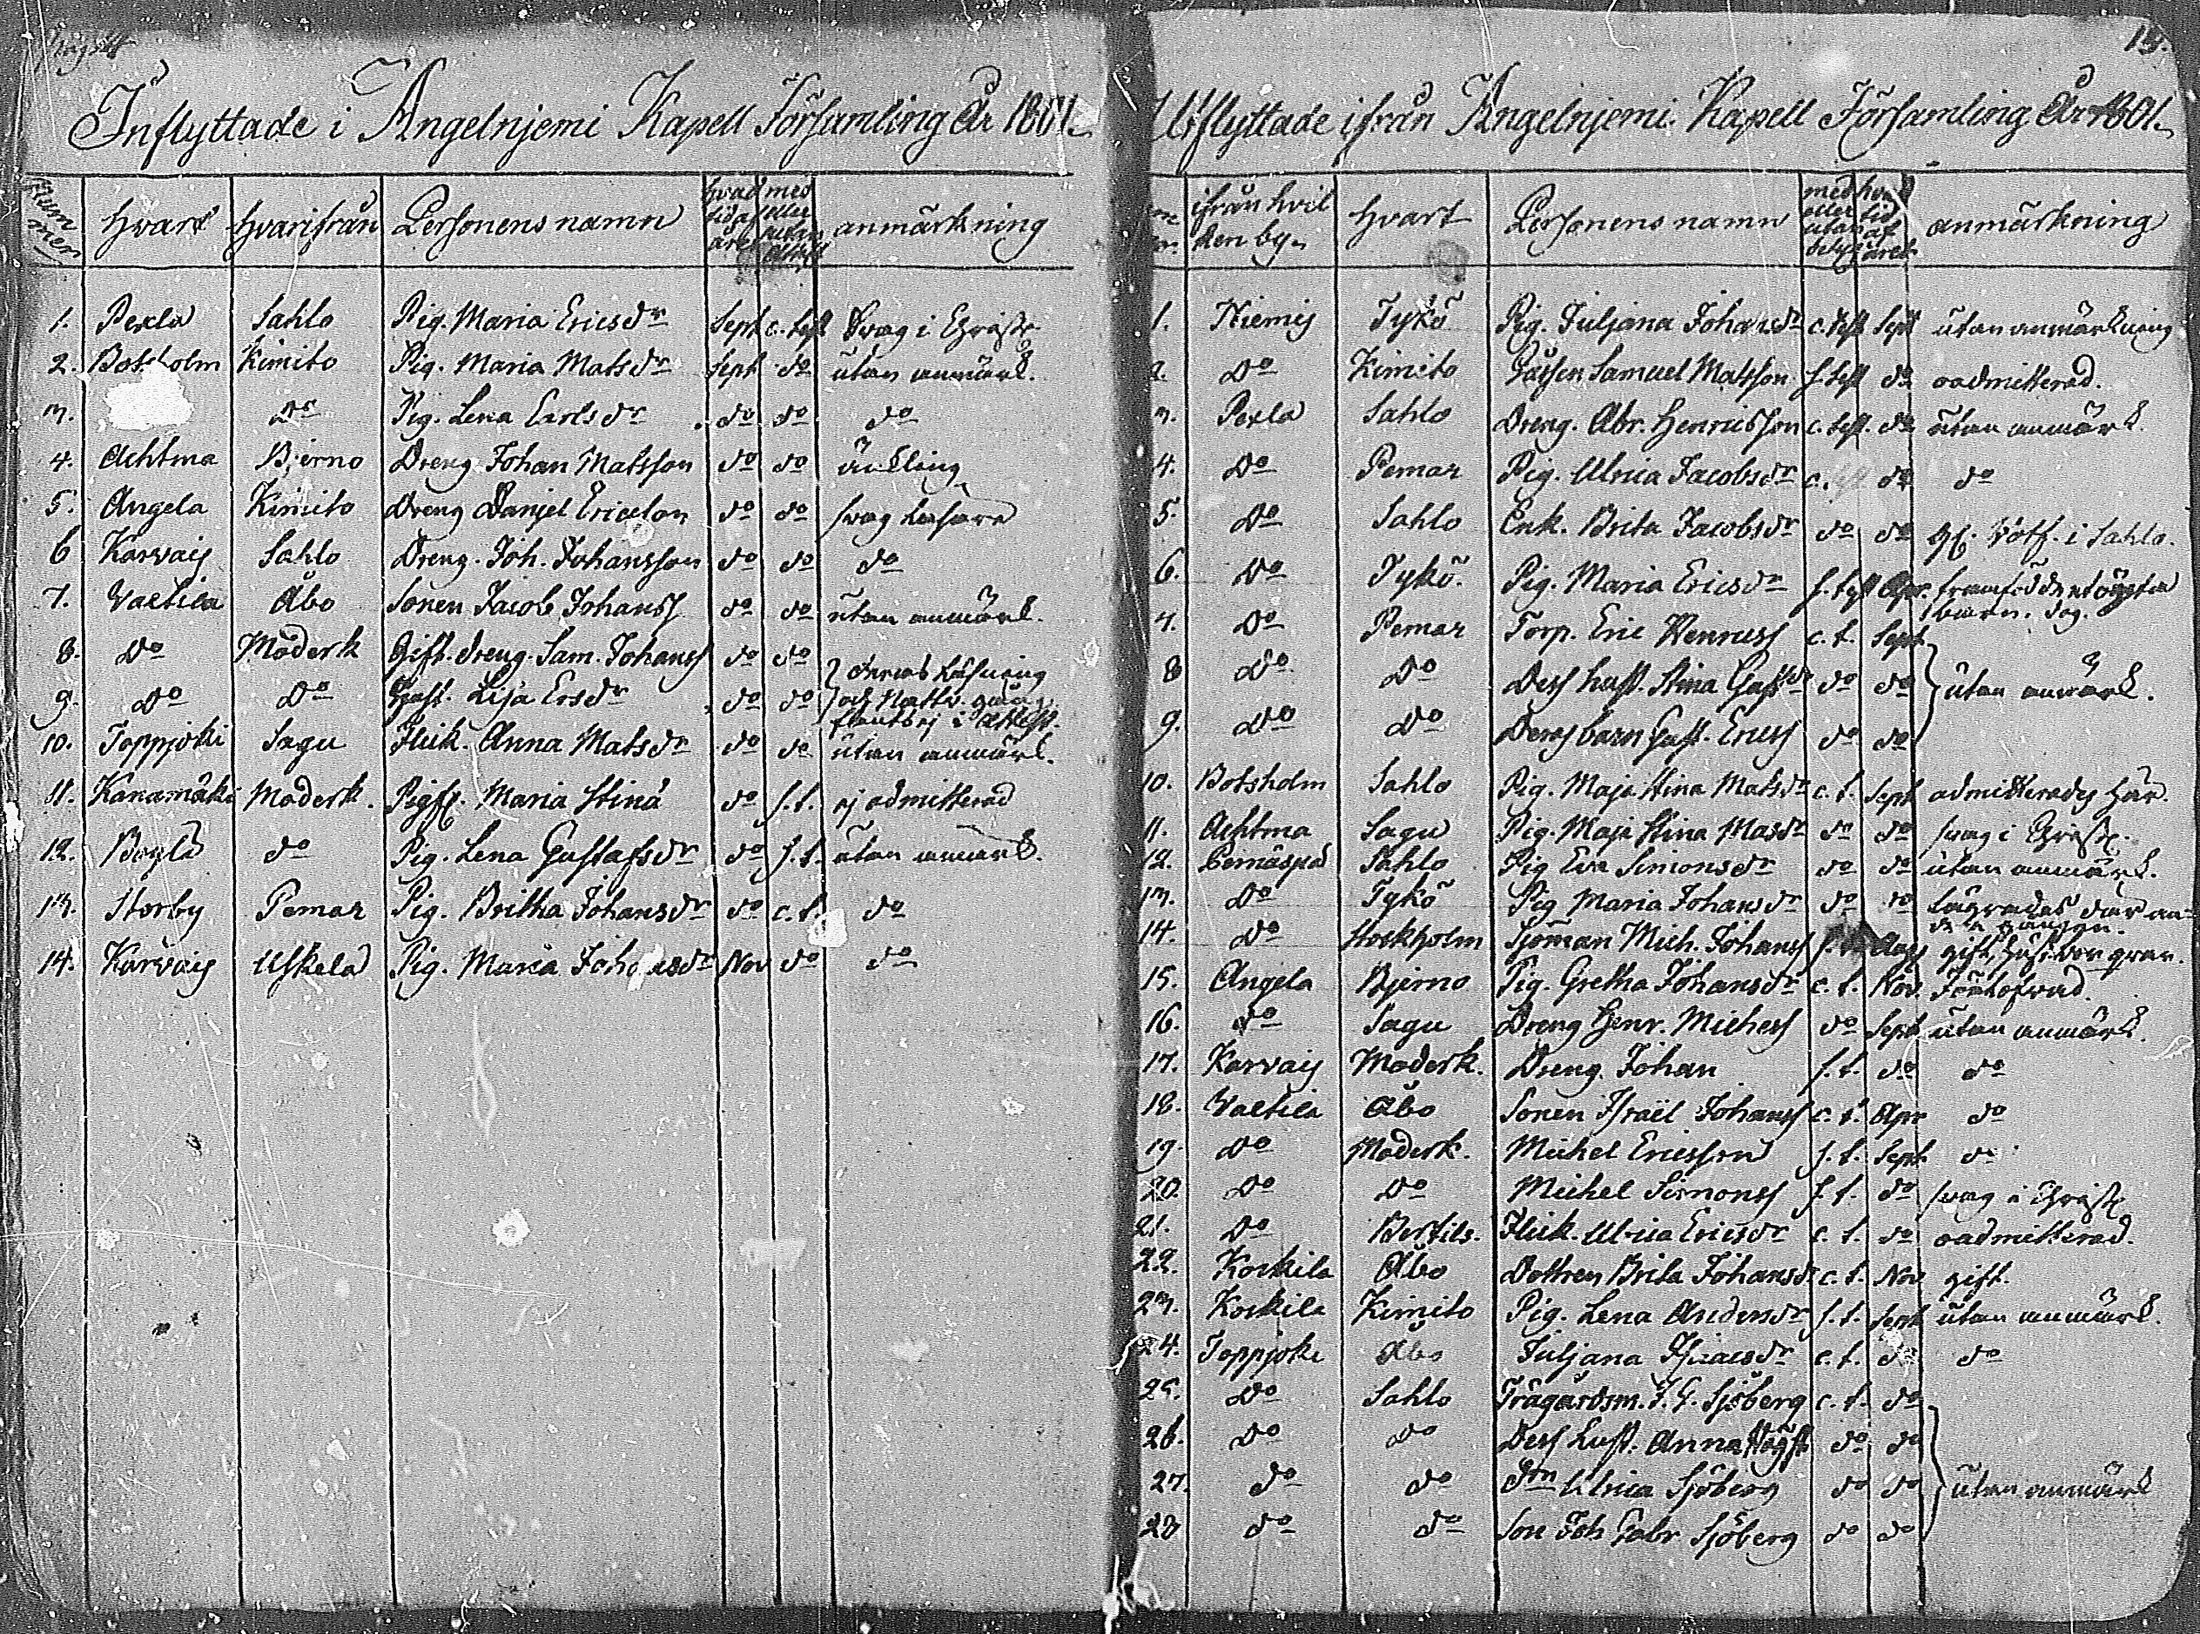 Inflyttade i Angelnjemi Kapell Församling År 1801.
Nummer hvart hvarifrån Personens namn hvad tid af året med eller utan attest anmärkning
1. Pexla Sahlo Pig. Maria Ericsdr Sept c. test Svag i Christ.
2. Botsholm Kimito Pig. Maria Matsdr Sept do utan anmärk.
3. do Pig. Lena Carlsdr do do do
4. Achtma Bjerno Dreng Johan Matsson do do änkling
5. Angela Kimito Dreng Danjel Ericsson do do svag läsare
6 Karvais Sahlo Dreng. Joh. Johansson do do do
7. Valtila Åbo Sonen Jacob Johanss do do utan anmärk.
8. do Moderk Gift. dreng. Sam. Johanss do do deras läsning
9. do do Hust. Lisa Ersdr do do och Nattv. gång
10. Toppjoki Sagu Flick. Anna Matsdr do do utan anmärk.
11. Kanamäki Moderk. Maria Stina do s. t. ej admitterad
12. Böylä do Pig. Lena Gustafsdr do s. t. utan anmärk.
13. Storby Pemar Pig. Britha Johansdr do c. t. do
14. Karvais Uskela Pig. Maria Johansdr Nov do do
15.
Utflyttade ifrån Angelnjemi Kapell Församling År 1801.
ifrån hvilken by hvart Personens namn med eller utan betyg hvad tid af året anmärkning
1. Niemis Tykö Pig. Juljana Johansdr c. test Sept utan anmärkning
2. do Kimito Gåssen Samuel Matsson s. test do oadmitterad.
3. Pexla Sahlo Dreng. Abr. Henricsson c. test. do utan anmärk.
4. do Pemar Pig. Ulrica Jacobsdr c. do do
5. do Sahlo Enk. Brita Jacobsdr do do i Sahlo.
6. do Tykö. Pig. Maria Ericsdr s. test Apr. framfödde et oägta barn.
7. do Pemar Torp. Eric Henricss c. t. Sept
8 do do Dess hust. Stina Gustdr do do utan anmärk.
9. do do Deras barn Gust. Ericss do do
10. Botsholm Sahlo Pig. Maja Stina Matsdr c. t. Sept admitterades här.
11. Achtma Sagu Pig. Maja Stina Masdr do do svag i Christ.
12. Pernäspää Sahlo Pig Eva Simonsdr do do utan anmärk.
13. do Tykö Pig Maria Johansdr do do lägrades der
14. do Stockholm Sjöman Mich. Johanss s. Aug gift,
15. Angela Bjerno Pig. Gretha Johansdr c. t. Nov. Förlofvad.
16. do Sagu Dreng Henr. Michelss do Sept utan anmärk.
17. Karvais Moderk. Dreng. Johan s. t. do do
18. Valtila Åbo Sonen Israël Johanss c. t. Apr do
19. do Moderk. Michel Ericsson s. t. Sept do
20. do do Michel Simonss s. t. do svag i Christ
21. do Bertils. Flick. Ulrica Ericsdr c. t. do oadmitterad.
22. Koskila Åbo Dottren Brita Johansdr c. t. Nov gift.
23. Koskila Kimito Pig. Lena Andersdr s. t. Sept utan anmärk.
24. Toppjoki Åbo Juljana Isacsdr c. t. do do
25. do Sahlo Trägårdsm. J. G. Sjöberg c. t. do
26. do do Dess hust. Anna do do
27. do do drn Ulrica Sjöberg do do utan anmärk
28 do do Son Joh Gabr Sjöberg do do